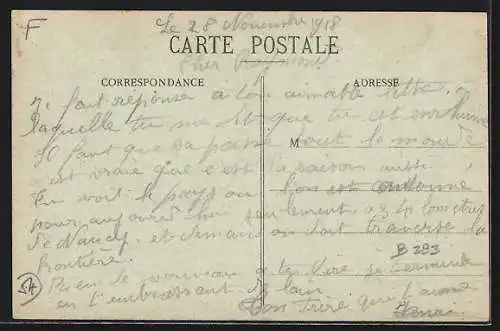 F
Le 28 Novembre 1918
CARTE POSTALE
Cher Raymond
CORRESPONDANCE ADRESSE
Je fait réponse a ton aimable lettre
laquelle tu me dit que tu est enrhumé
Il faut que sa passe tout le monde M
est vraie que c'est la saison aussi.
on voit le pays ou l'on est
pour aujourd'hui seulement a 34 kilomètres
de Nancy. et demain on doit traversé la
frontière.
Rien de nouveau a te dire je termine
en t'embrassant de loin.
Ton frère qui t'aime
Henri
B 293